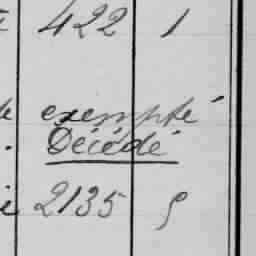 422 1
exempté
Décédé
2135 9